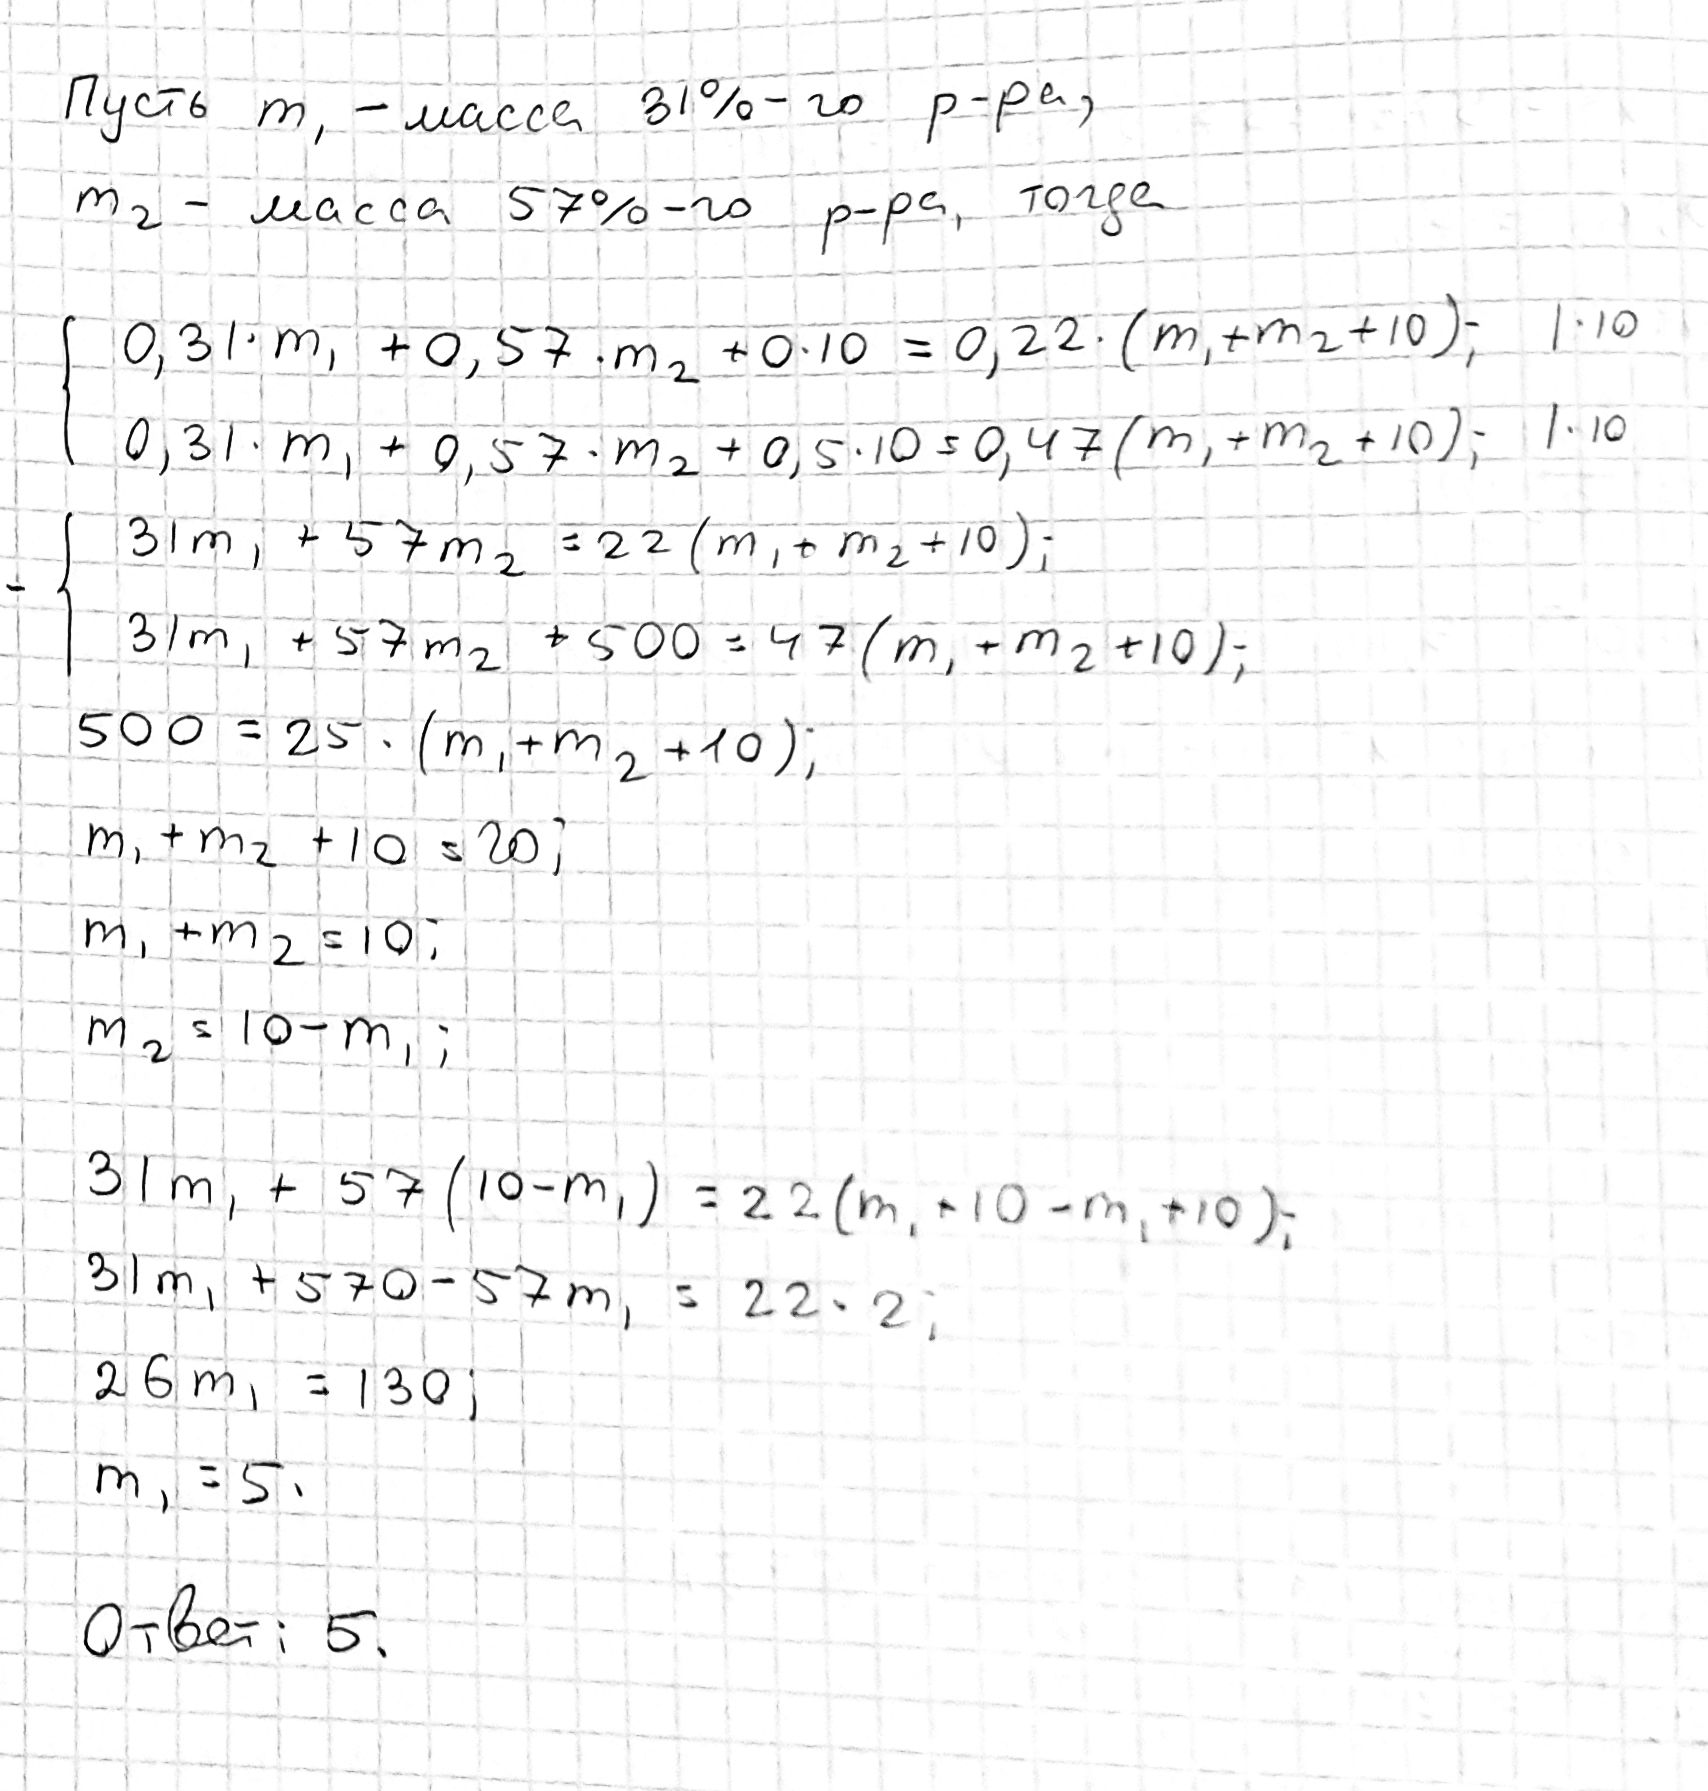 Пусть m₁ – масса 31%-го р-ра,
m₂ – масса 57%-го р-ра, тогда
0,31·m₁ + 0,57·m₂ + 0·10 = 0,22·(m₁+m₂+10); |·10
0,31·m₁ + 0,57·m₂ + 0,5·10 = 0,47(m₁+m₂+10); |·10
31m₁ + 57m₂ = 22(m₁+m₂+10);
-
31m₁ + 57m₂ + 500 = 47(m₁+m₂+10);
500 = 25·(m₁+m₂+10);
m₁+m₂+10 = 20;
m₁+m₂ = 10;
m₂ = 10–m₁;
31m₁ + 57(10–m₁) = 22(m₁+10–m₁+10);
31m₁ + 570 – 57m₁ = 22·2;
26m₁ = 130;
m₁ = 5.
Ответ: 5.